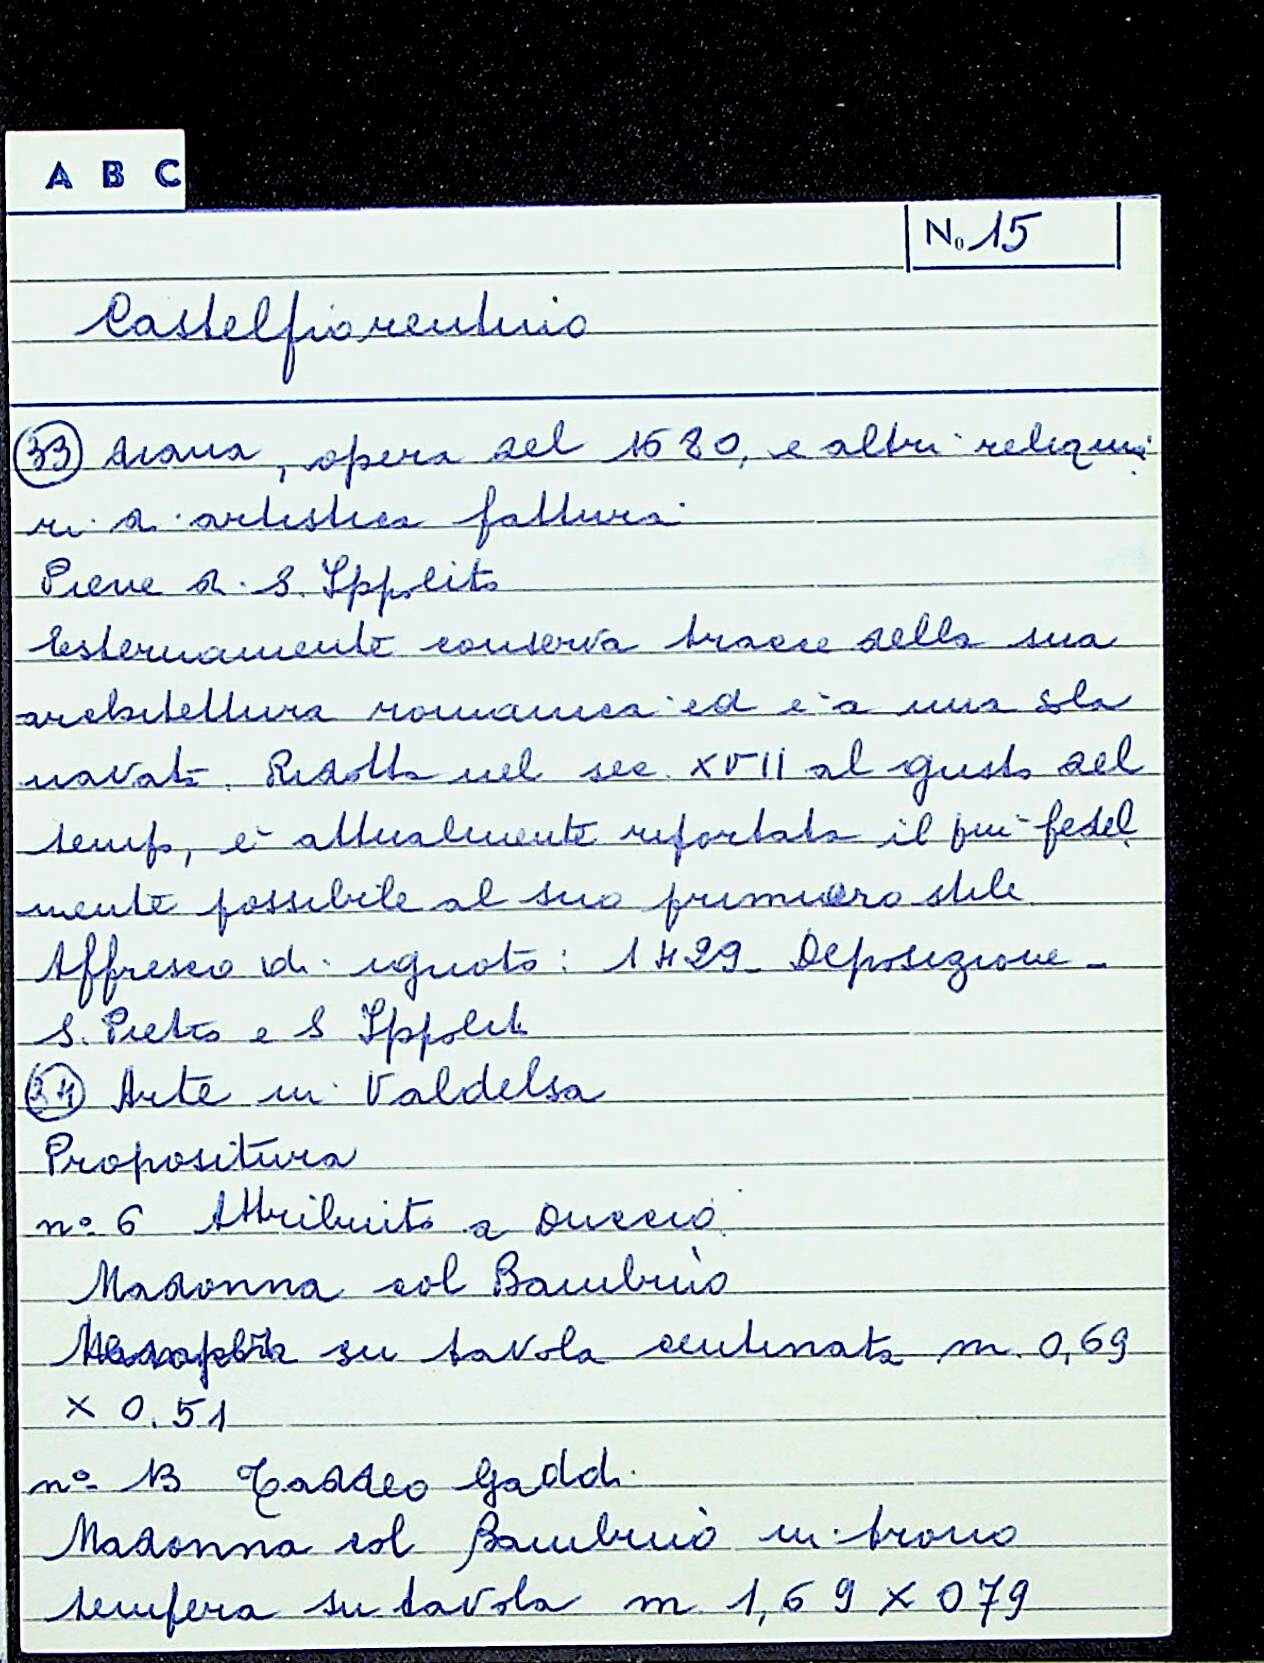 A B C
No 15
Castelfiorentino
33 diana, opera del 1680, e altri reliquia
ri di artistica fattura
Pieve di S. Ippolito
Esternamente conserva tracce della sua
architettura romanica ed è a una sola
navata. Ridotta nel sec. XVII al gusto del
tempo, è attualmente riportata il più fedel
mente possibile al suo primiero stile
Affresco di ignoto: 1429. Deposizione -
S. Pietro e S Ippolito
34 Arte in Valdelsa
Propositura
n° 6 Attribuito a Duccio
Madonna col Bambino
su tavola centinata m. 0,69
x 0.51
n° 13 Taddeo Gaddi
Madonna col Bambino in trono
tempera su tavola m 1,69 x 079